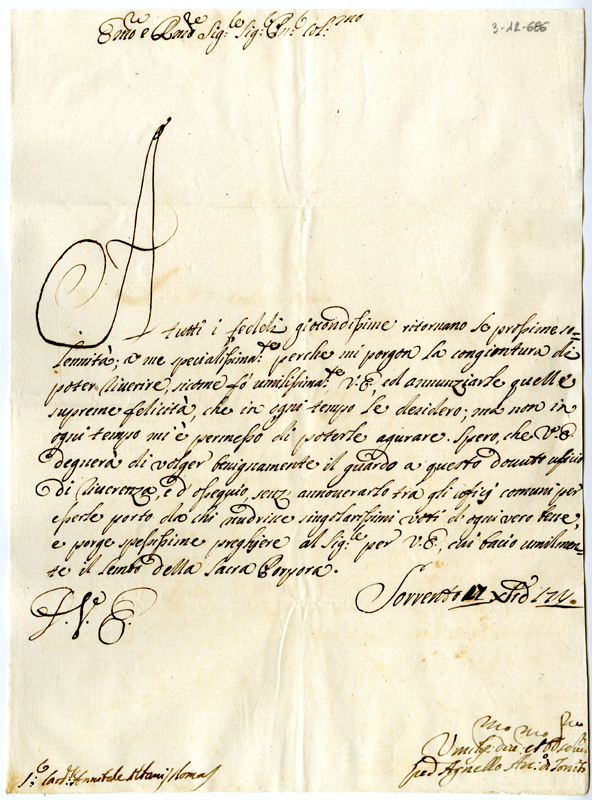 Em.mo e R.mo Sig.re Sig.re P.ne Col.mo
3-12-686
A tutti i fedeli giocondissime ritornano le prossime so-
lennità; a me specialissima.te perche mi porgon la congiontura di
poter riverire, sicome fò umilissima.te V.E., ed annunziarle quelle
supreme felicità, che in ogni tempo le desidero; ma non in
ogni tempo mi è permesso di poterle agurare. Spero, che V.E.
degnerà di volger benignamente il guardo a questo dovuto ufficio
di riverenza, e d'ossequio, senz annoverarlo tra gli officij comuni per
esserle porto da chi nudrisce singolarissimi voti di ogni vero bene,
e porge spessissime preghiere al Sig.re per V.E., cui bacio umilmen-
te il lembo della Sacra Porpora.
Sorrento
D. V. E.
Umiliss. div. et obb
S.r Card.le Annibale Albani / Roma